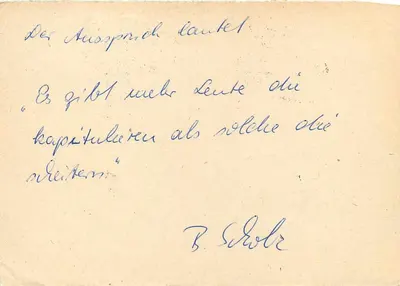 Der Ausspruch lautet:
„Es gibt mehr Leute die
kapitulieren als solche die
scheitern“
B. Scholz